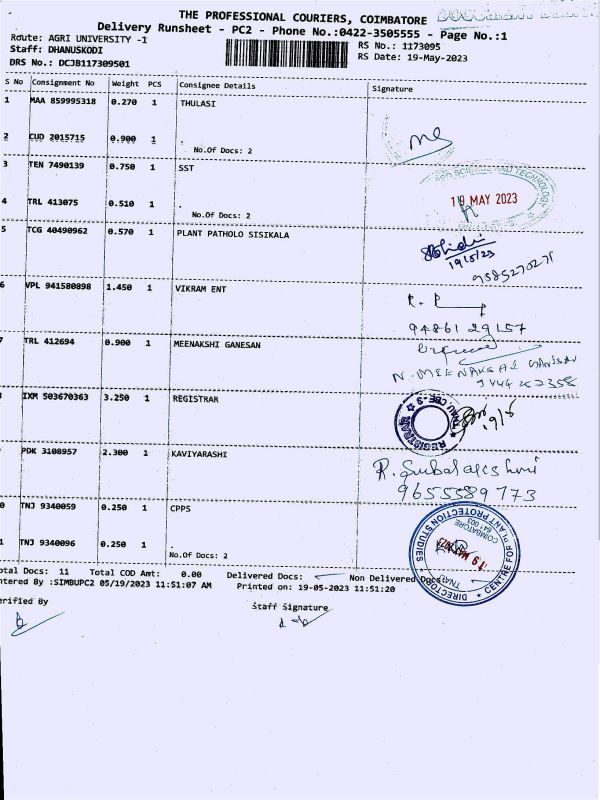 THE PROFESSIONAL COURIERS, COIMBATORE
Delivery Runsheet - PC2 - Phone No.:0422-3505555 - Page No.:1
Route: AGRI UNIVERSITY -1
RS No.: 1173095
Staff: DHANUSKODI
RS Date: 19-May-2023
DRS No.: DCJB117309501
S No Consignment No Weight PCS Consignee Details Signature
1 MAA 859995318 0.270 1 THULASI
2 CUD 2015715 0.900 1 .
No.Of Docs: 2
3 TEN 7490139 0.750 1 SST
SCIENCE AND TECHNOLOGY
19 MAY 2023
4 TRL 413075 0.510 1 .
No.Of Docs: 2
5 TCG 40490962 0.570 1 PLANT PATHOLO SISIKALA
19/5/23
9585270271
6 VPL 941580898 1.450 1 VIKRAM ENT
R. P
9486129157
7 TRL 412694 0.900 1 MEENAKSHI GANESAN
N. MEENAKSHI GANESAN
9444262358
IXM 503670363 3.250 1 REGISTRAR
REGISTRAR TNAU, CBE-3
19/5
PDK 3108957 2.300 1 KAVIYARASHI
R. Subalakshmi
9655589773
0 TNJ 9340059 0.250 1 CPPS
DIRECTOR CENTRE FOR PLANT PROTECTION STUDIES
TNAU COIMBATORE 641 003
19 MAY 2023
1 TNJ 9340096 0.250 1 .
No.Of Docs: 2
otal Docs: 11 Total COD Amt: 0.00 Delivered Docs: Non Delivered Docs:
ntered By :SIMBUPC2 05/19/2023 11:51:07 AM Printed on: 19-05-2023 11:51:20
erified By
Staff Signature